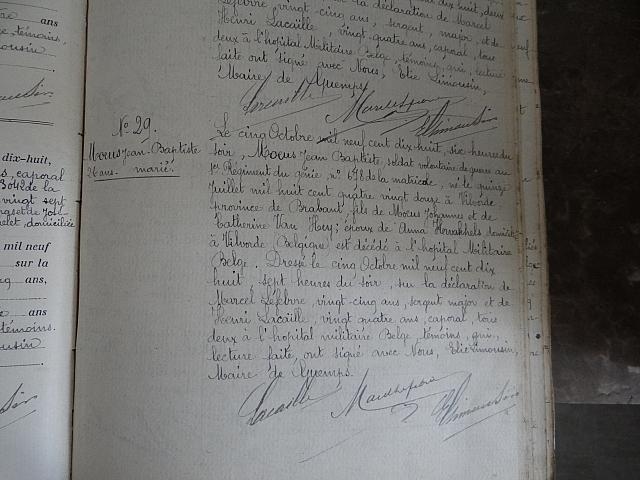 ans
témoins,
ousin
dix-huit,
s, caporal
3042 de la
vingt sept
domiciliée
mil neuf
sur la
ans,
ans
témoins.
ousin
déclaration de Marcel
Lefebvre vingt-cinq ans, sergent, major, et de
Henri Lacaille, vingt-quatre ans, caporal, tous
deux à l'hopital Militaire Belge, témoins, qui, lecture
faite ont signé avec Nous, Elie Limousin,
Maire de Guemps.
Lacaille Limousin
N° 29.
Moeus Jean-Baptiste
26 ans. marié.
Le cinq Octobre mil neuf cent dix-huit, six heures du
soir, Moeus Jean Baptiste, soldat volontaire de guerre au
1er Régiment du génie, n° 678 de la matricule, né le quinze
Juillet mil huit cent quatre vingt douze à Vilvorde
province de Brabant, fils de Moeus Johannes et de
Catherine Van Hoey; époux de Anna domiciliée
à Vilvorde (Belgique) est décédé à l'hopital Militaire
Belge. Dressé le cinq Octobre mil neuf cent dix
huit, sept heures du soir, sur la déclaration de
Marcel Lefebvre, vingt-cinq ans, sergent major et de
Henri Lacaille, vingt quatre ans, caporal, tous
deux à l'hopital militaire Belge, témoins, qui,
lecture faite, ont signé avec Nous, Elie Limousin,
Maire de Guemps.
Lacaille Marcel Lefebvre Elimousin